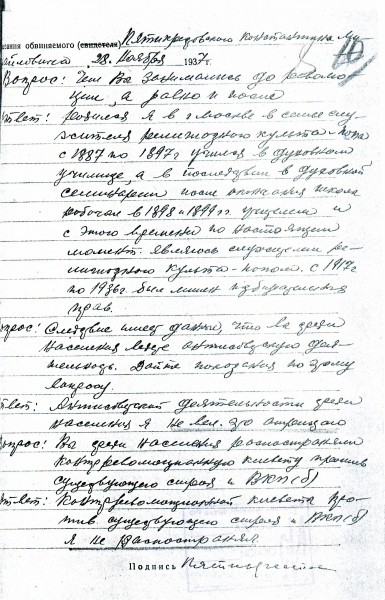 зания обвиняемого (свидетеля) Пятикрестовского Константина Ми-
хайловича 28. Ноября 1937 г.
10
Вопрос: Чем Вы занимались до револю
ции, а равно и после
твет: родился я в г. Москве в семье слу-
жителя религиозного культа - попа
с 1887 по 1897 г учился в духовном
училище, а в последствии в духовной
семинарии после окончания школы
работал в 1898 и 1899 гг. учителем и
с этого времени по настоящий
момент являюсь служителем ре-
лигиозного культа - попом. с 1917 г
по 1936 г. был лишен избирательных
прав.
прос: Следствие имеет данные, что вы среди
населения ведете антисоветскую дея-
тельность. Дайте показания по этому
вопросу.
твет: Антисоветской деятельности среди
населения я не вел. это отрицаю
опрос: Вы среди населения распостраняли
контрреволюционную клевету против
существующего строя и ВКП(б)
твет: Контрреволюционной клевета про-
тив существующего строя и ВКП(б)
я не распостранял.
Подпись